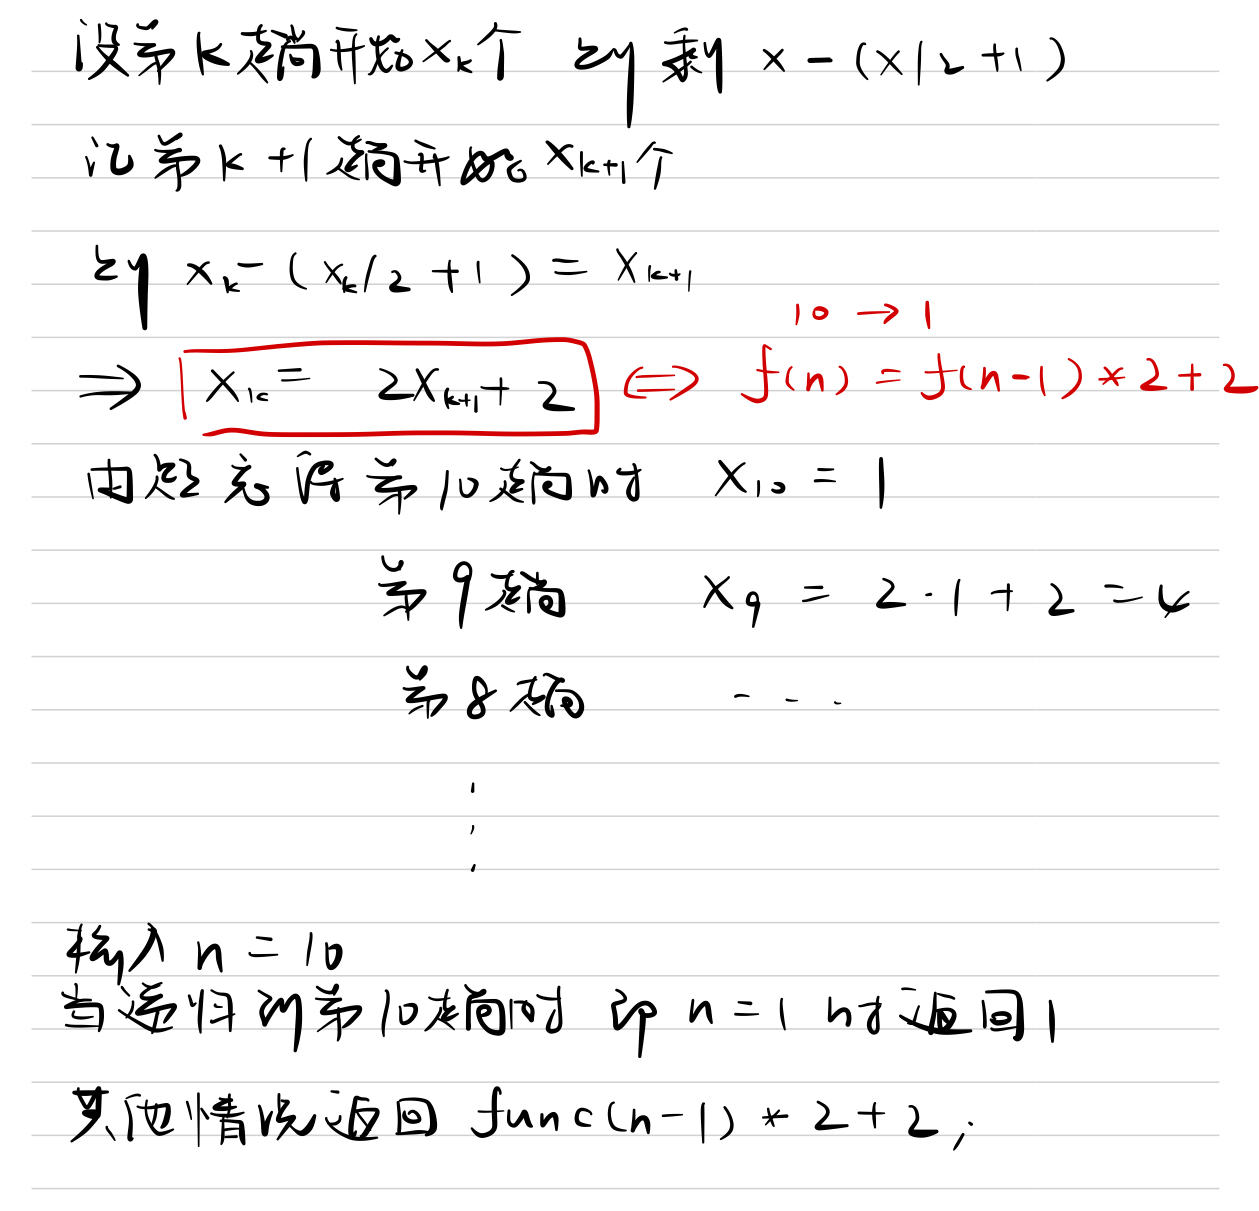 设第k趟开始xₖ个 则剩 x - (x/2+1)
记第k+1趟开始 xₖ₊₁个
则 xₖ - (xₖ/2 + 1) = xₖ₊₁
10 → 1
⇒ xₖ = 2xₖ₊₁ + 2 ⇔ f(n) = f(n-1) * 2 + 2
由题意得第10趟时 x₁₀ = 1
第9趟 x₉ = 2·1 + 2 = 4
第8趟 ...
⋮
输入 n = 10
当递归到第10趟时 即 n = 1 时返回1
其他情况返回 func(n-1) * 2 + 2;